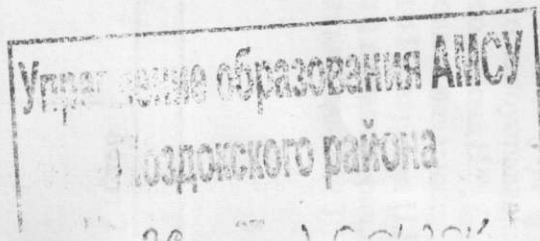 Управление образования АМСУ
Моздокского района